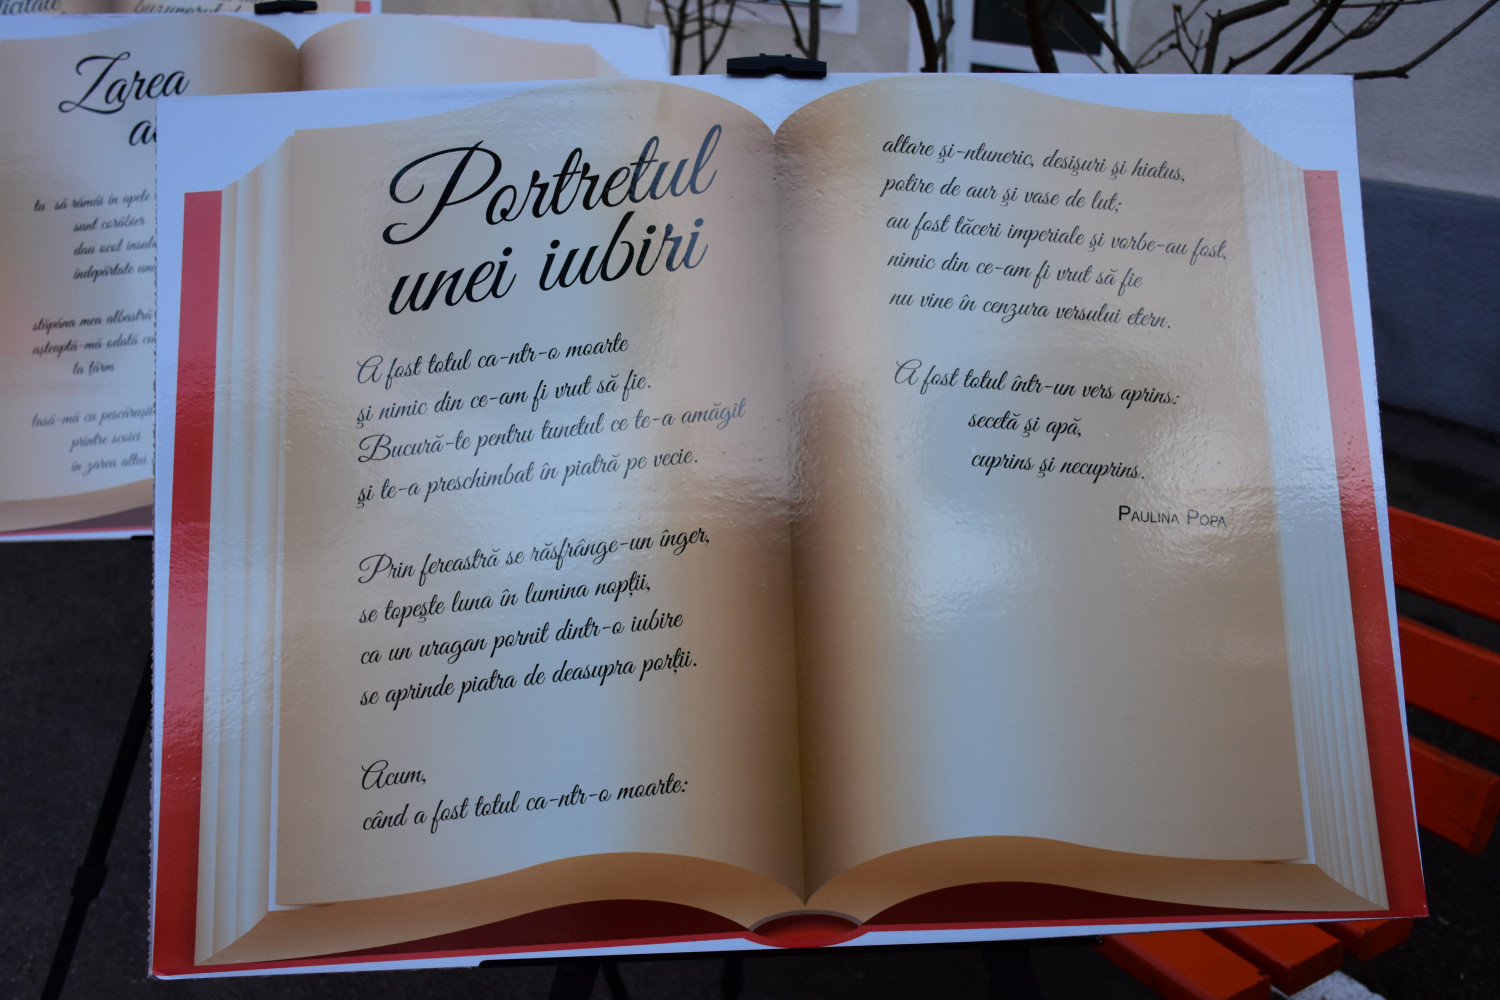 icitate
buzunarul
Zarea
tu să rămâi în apele
sunt corăbier
dau ocol insul
îndepărtate une
stăpâna mea albastră
așteaptă-mă odată cu
la țărm
lasă-mă cu pescărușii
printre scoici
în zarea altui
Portretul
unei iubiri
A fost totul ca-ntr-o moarte
şi nimic din ce-am fi vrut să fie.
Bucură-te pentru tunetul ce te-a amăgit
şi te-a preschimbat în piatră pe vecie.
Prin fereastră se răsfrânge-un înger,
se topeşte luna în lumina nopții,
ca un uragan pornit dintr-o iubire
se aprinde piatra de deasupra porții.
Acum,
când a fost totul ca-ntr-o moarte:
altare şi-ntuneric, desişuri şi hiatus,
potire de aur şi vase de lut;
au fost tăceri imperiale şi vorbe-au fost,
nimic din ce-am fi vrut să fie
nu vine în cenzura versului etern.
A fost totul într-un vers aprins:
secetă şi apă,
cuprins şi necuprins.
Paulina Popa